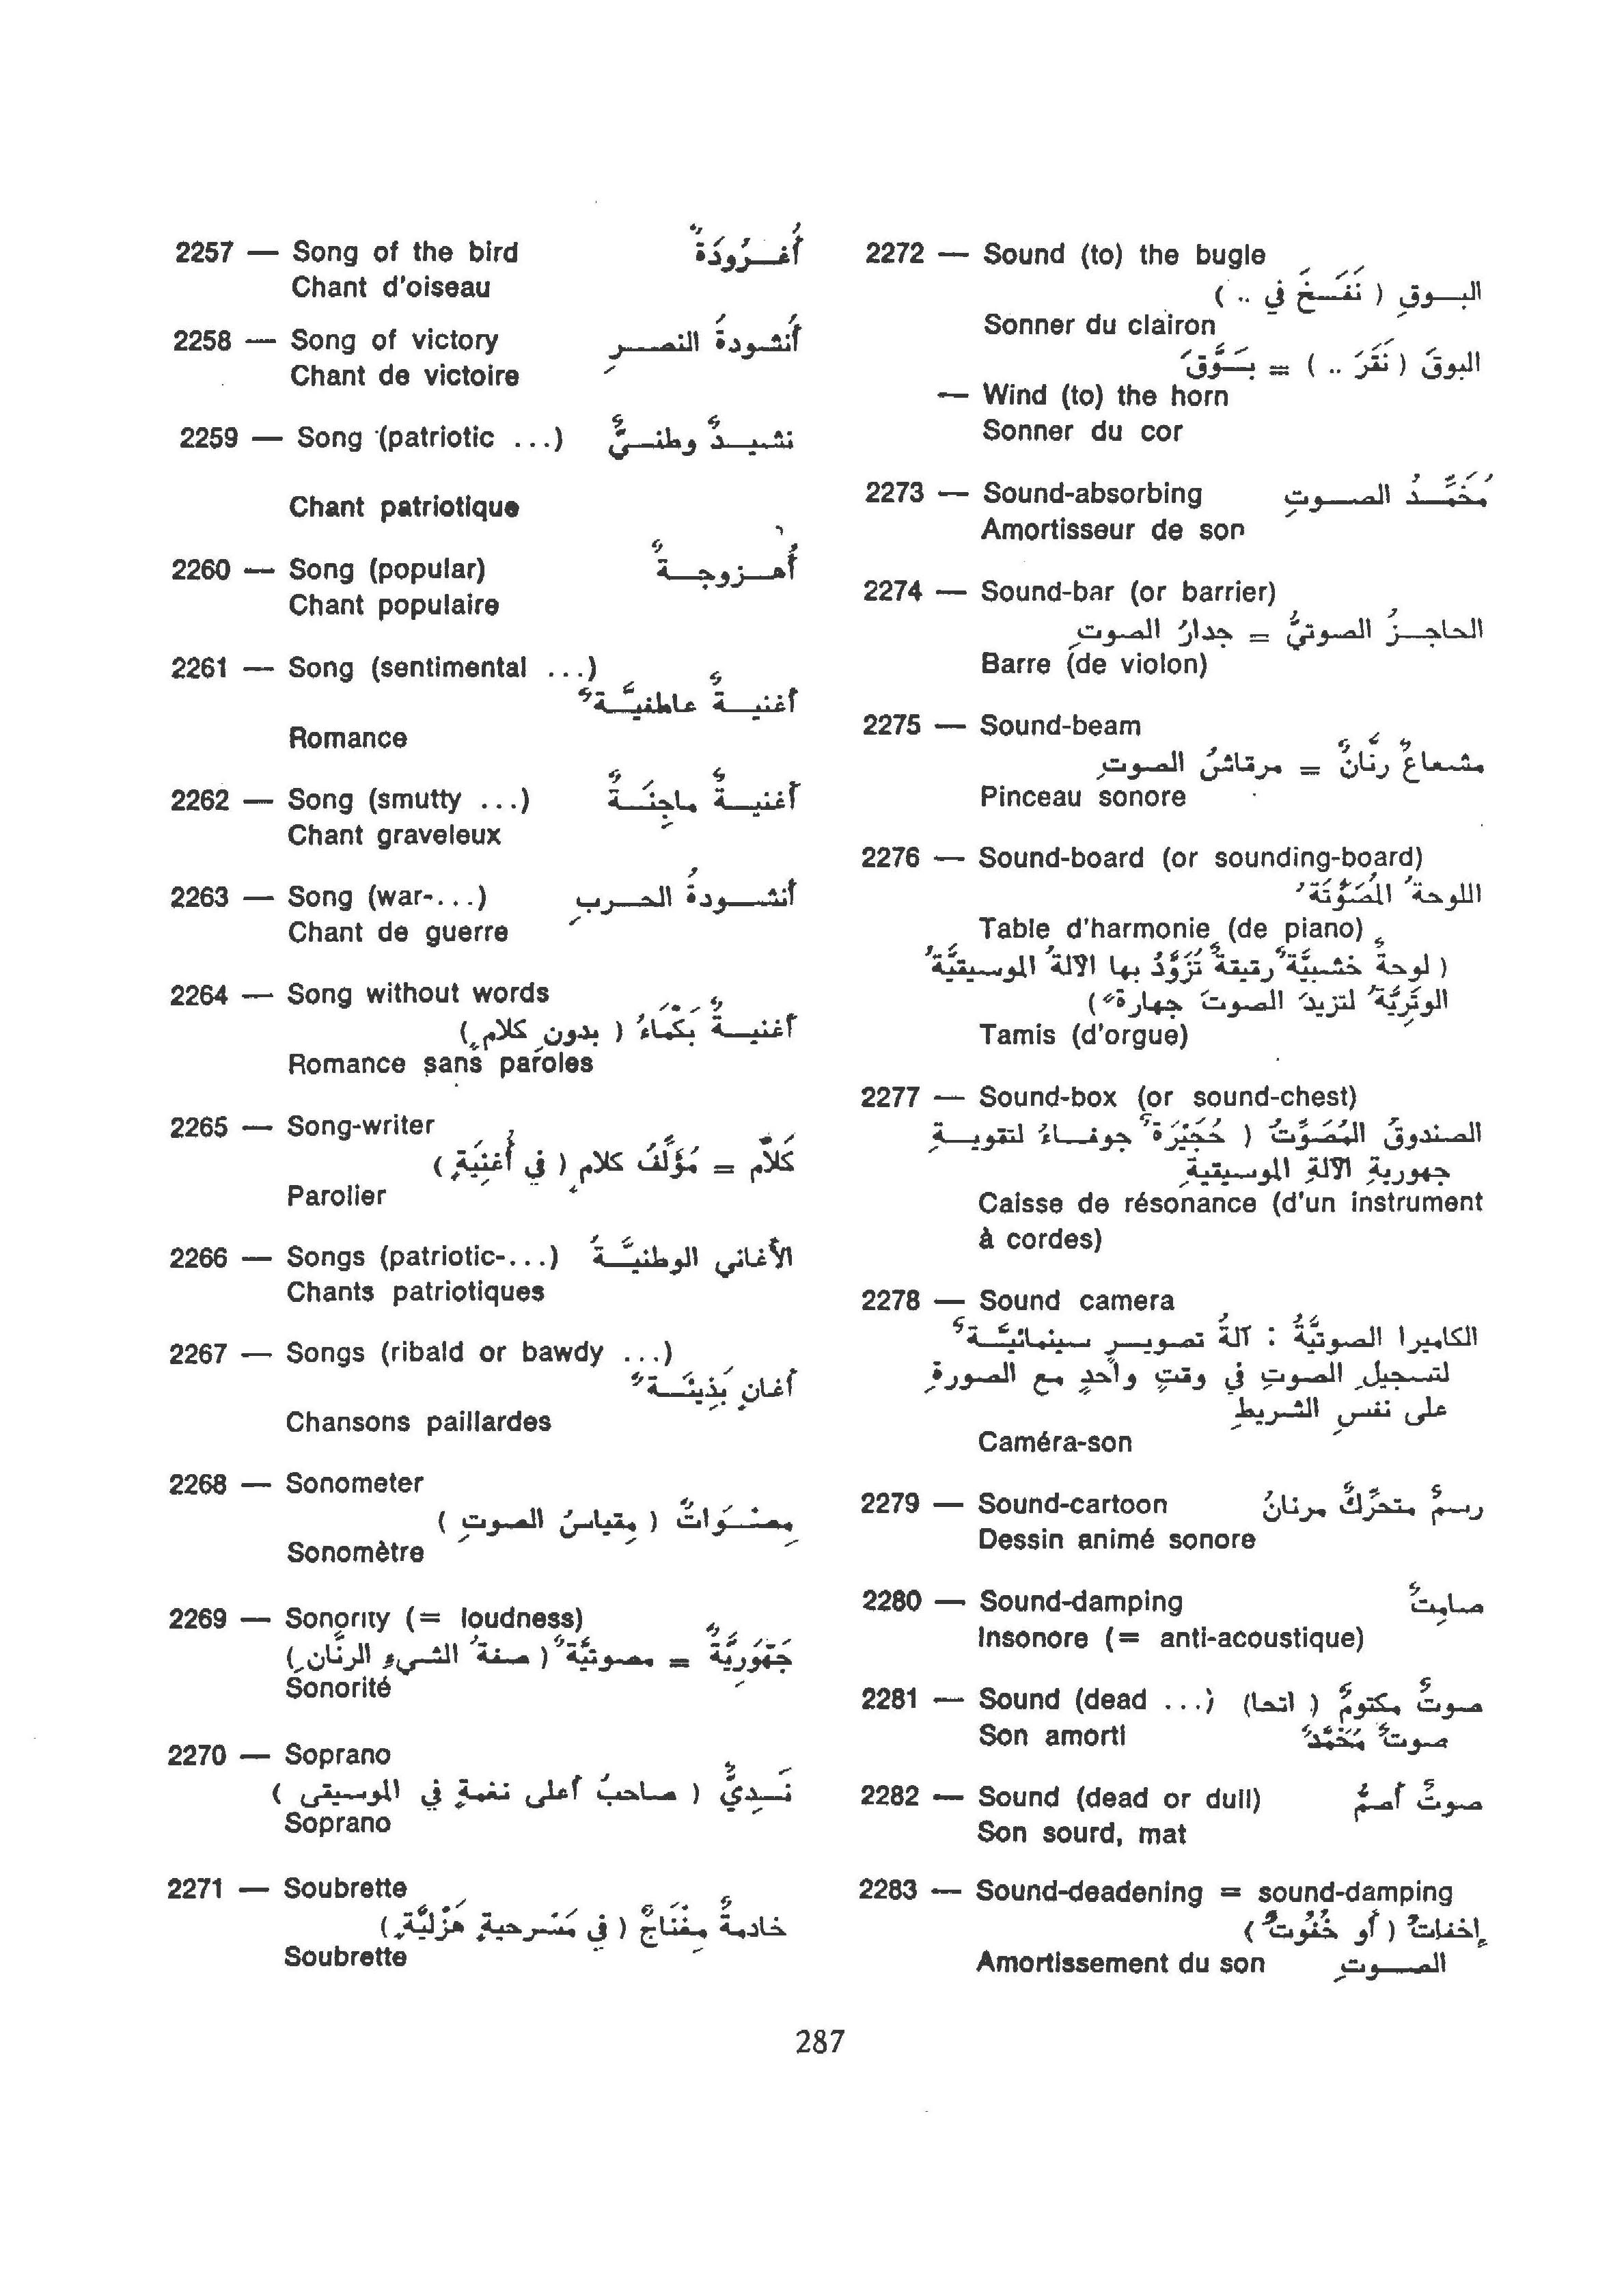 2257 — Song of the bird أُغـرُودَةٌ
Chant d'oiseau
2258 — Song of victory أُنشودةُ النصرِ
Chant de victoire
2259 — Song (patriotic ...) نشيدٌ وطنيٌّ
Chant patriotique
2260 — Song (popular) أُهزوجةٌ
Chant populaire
2261 — Song (sentimental ...)
أغنيةٌ عاطفيَّةٌ
Romance
2262 — Song (smutty ...) أغنيةٌ ماجِنَةٌ
Chant graveleux
2263 — Song (war-...) أنشودةُ الحربِ
Chant de guerre
2264 — Song without words
أغنيةٌ بَكْمَاءُ ( بدونِ كلامٍ )
Romance sans paroles
2265 — Song-writer
كَلاَّم = مُؤَلِّفُ كلامٍ ( في أُغنِيَةٍ )
Parolier
2266 — Songs (patriotic-...) الأغاني الوطنيَّةُ
Chants patriotiques
2267 — Songs (ribald or bawdy ...)
أغانٍ بَذِيئَةٌ
Chansons paillardes
2268 — Sonometer
مِصْوَاتٌ ( مِقياسُ الصوتِ )
Sonomètre
2269 — Sonority (= loudness)
جَهْوَرِيَّةٌ = مصوتيَّةٌ ( صفةُ الشيءِ الرنَّانِ )
Sonorité
2270 — Soprano
نَدِيٌّ ( صاحبُ أعلى نغمةٍ في الموسيقى )
Soprano
2271 — Soubrette
خادمةٌ مِغْنَاجٌ ( في مَسْرحيةٍ هَزْليَّةٍ )
Soubrette
2272 — Sound (to) the bugle
البوقِ ( نَفَخَ في .. )
Sonner du clairon
البوقَ ( نَقَرَ .. ) = بَوَّقَ
— Wind (to) the horn
Sonner du cor
2273 — Sound-absorbing مُخَمِّدُ الصوتِ
Amortisseur de son
2274 — Sound-bar (or barrier)
الحاجزُ الصوتيُّ = جدارُ الصوتِ
Barre (de violon)
2275 — Sound-beam
شعاعٌ رنَّانٌ = مرقاشُ الصوتِ
Pinceau sonore
2276 — Sound-board (or sounding-board)
اللوحةُ المُصَوِّتَةُ
Table d'harmonie (de piano)
( لوحةٌ خشبيَّةٌ رقيقةٌ تُزَوَّدُ بها الآلةُ الموسيقيَّةُ
الوتَرِيَّةُ لتزيدَ الصوتَ جهارةً )
Tamis (d'orgue)
2277 — Sound-box (or sound-chest)
الصندوقُ المُصَوِّتُ ( حُجَيْرَةٌ جوفاءُ لتقويةِ
جهوريةِ الآلةِ الموسيقيةِ
Caisse de résonance (d'un instrument
à cordes)
2278 — Sound camera
الكاميرا الصوتيَّةُ : آلةُ تصويرٍ سينمائيَّةٌ
لتسجيلِ الصوتِ في وقتٍ واحدٍ مع الصورةِ
على نفسِ الشريطِ
Caméra-son
2279 — Sound-cartoon رسمٌ متحرِّكٌ مرنانُ
Dessin animé sonore
2280 — Sound-damping صامِتٌ
Insonore (= anti-acoustique)
2281 — Sound (dead ...) صوتٌ مكتومٌ ( اتحا)
Son amorti صوتٌ مُخَمَّدٌ
2282 — Sound (dead or dull) صوتٌ أصمُّ
Son sourd, mat
2283 — Sound-deadening = sound-damping
إخفاتُ ( أو خُفُوتُ )
Amortissement du son الصوتِ
287